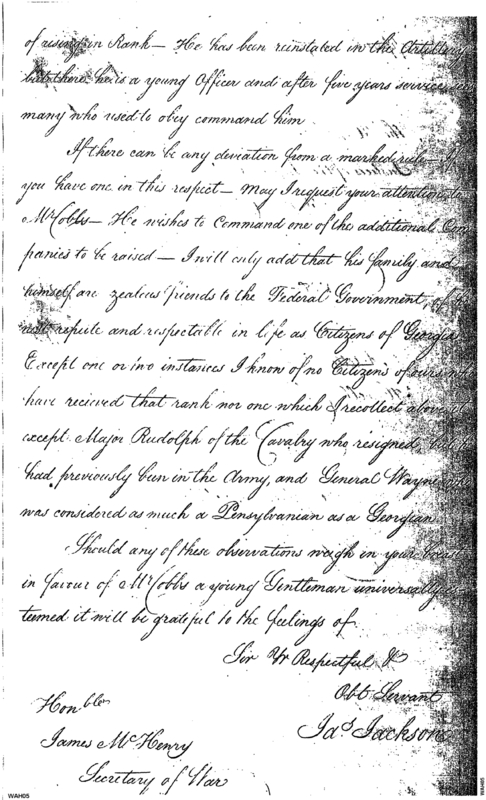 of rising in Rank — He has been reinstated in the Artillery
but there he is a young Officer and after five years service
many who used to obey command him
If there can be any deviation from a marked rule — if
you have one in this respect — may I request your attention to
Mr Cobbs — He wishes to command one of the additional Com
panies to be raised — I will only add that his family and
himself are zealous friends to the Federal Government, of
repute and respectable in life as Citizens of Georgia
Except one or two instances I know of no Citizens of ours who
have recieved that rank nor one which I recollect above it
except Major Rudolph of the Cavalry who resigned, but
had previously been in the Army, and General Wayne who
was considered as much a Pensylvanian as a Georgian
Should any of these observations weigh in your
in favour of Mr Cobbs a young Gentleman universally es
teemed it will be grateful to the feelings of
Sir Yr Respectful &
Obt Servant
Jas Jackson
Honble
James McHenry
Secretary of War
WAH05
WAH05